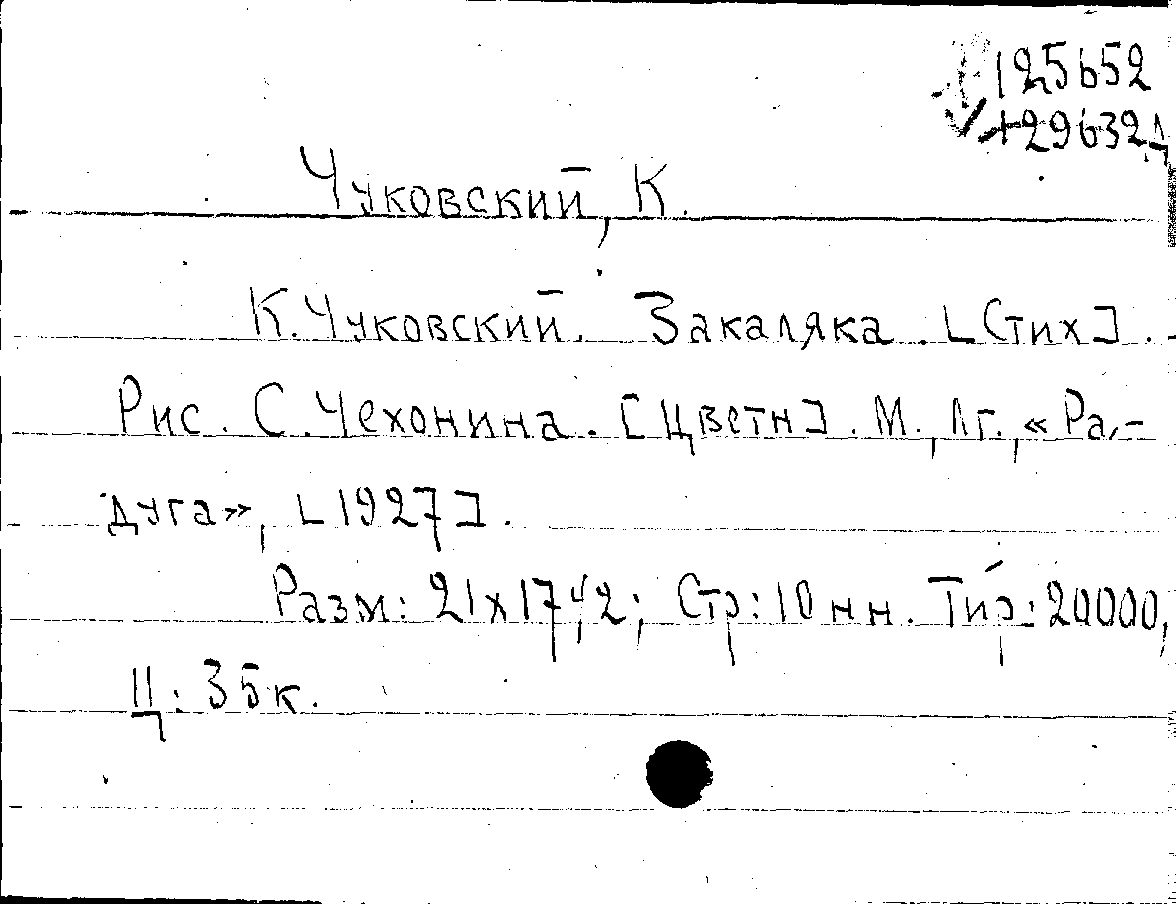 125652
+29632д
Чуковский, К.
К. Чуковский. Закаляка. [Стих].
Рис. С. Чехонина. [Цветн]. М., Лг., «Ра-
дуга», [1927].
Разм: 21х17,2; Стр: 10 нн. Тир: 20000,
Ц: 35 к.